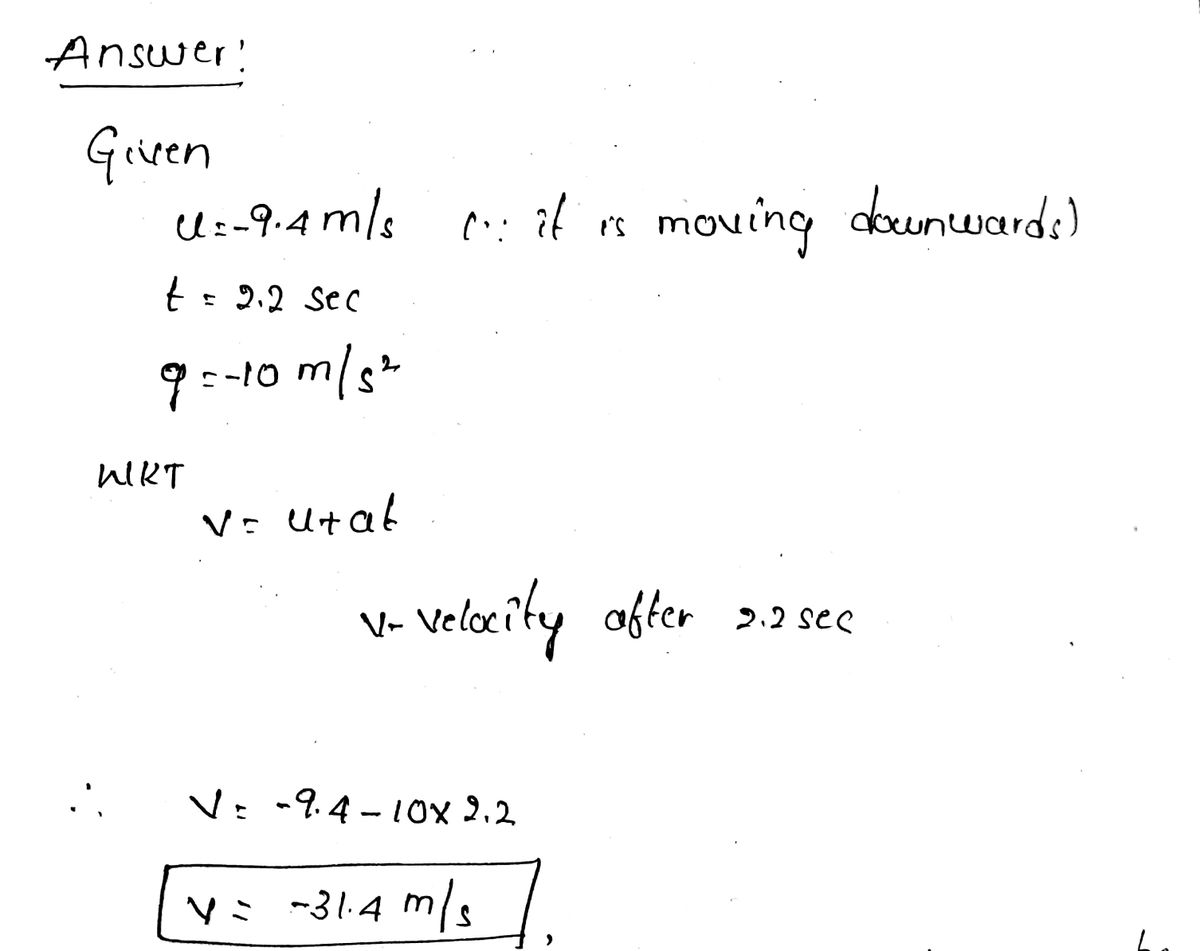 Answer:
Given
u=-9.4 m/s (∵ it is moving downwards)
t = 2.2 sec
g =-10 m/s²
WKT
v= u+at
v- velocity after 2.2 sec
∴ v= -9.4 - 10x 2.2
v= -31.4 m/s,